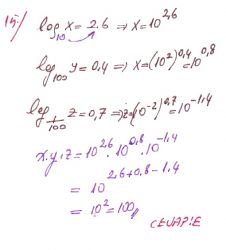 15./ log₁₀ x = 2,6 ⇒ x = 10^2,6
log₁₀₀ y = 0,4 ⇒ x = (10²)^0,4 = 10^0,8
log_(1/100) z = 0,7 ⇒ z = (10⁻²)^0,7 = 10^-1,4
x.y.z = 10^2,6 . 10^0,8 . 10^-1,4
= 10^2,6+0,8-1,4
= 10² = 100//
CEVAP:E